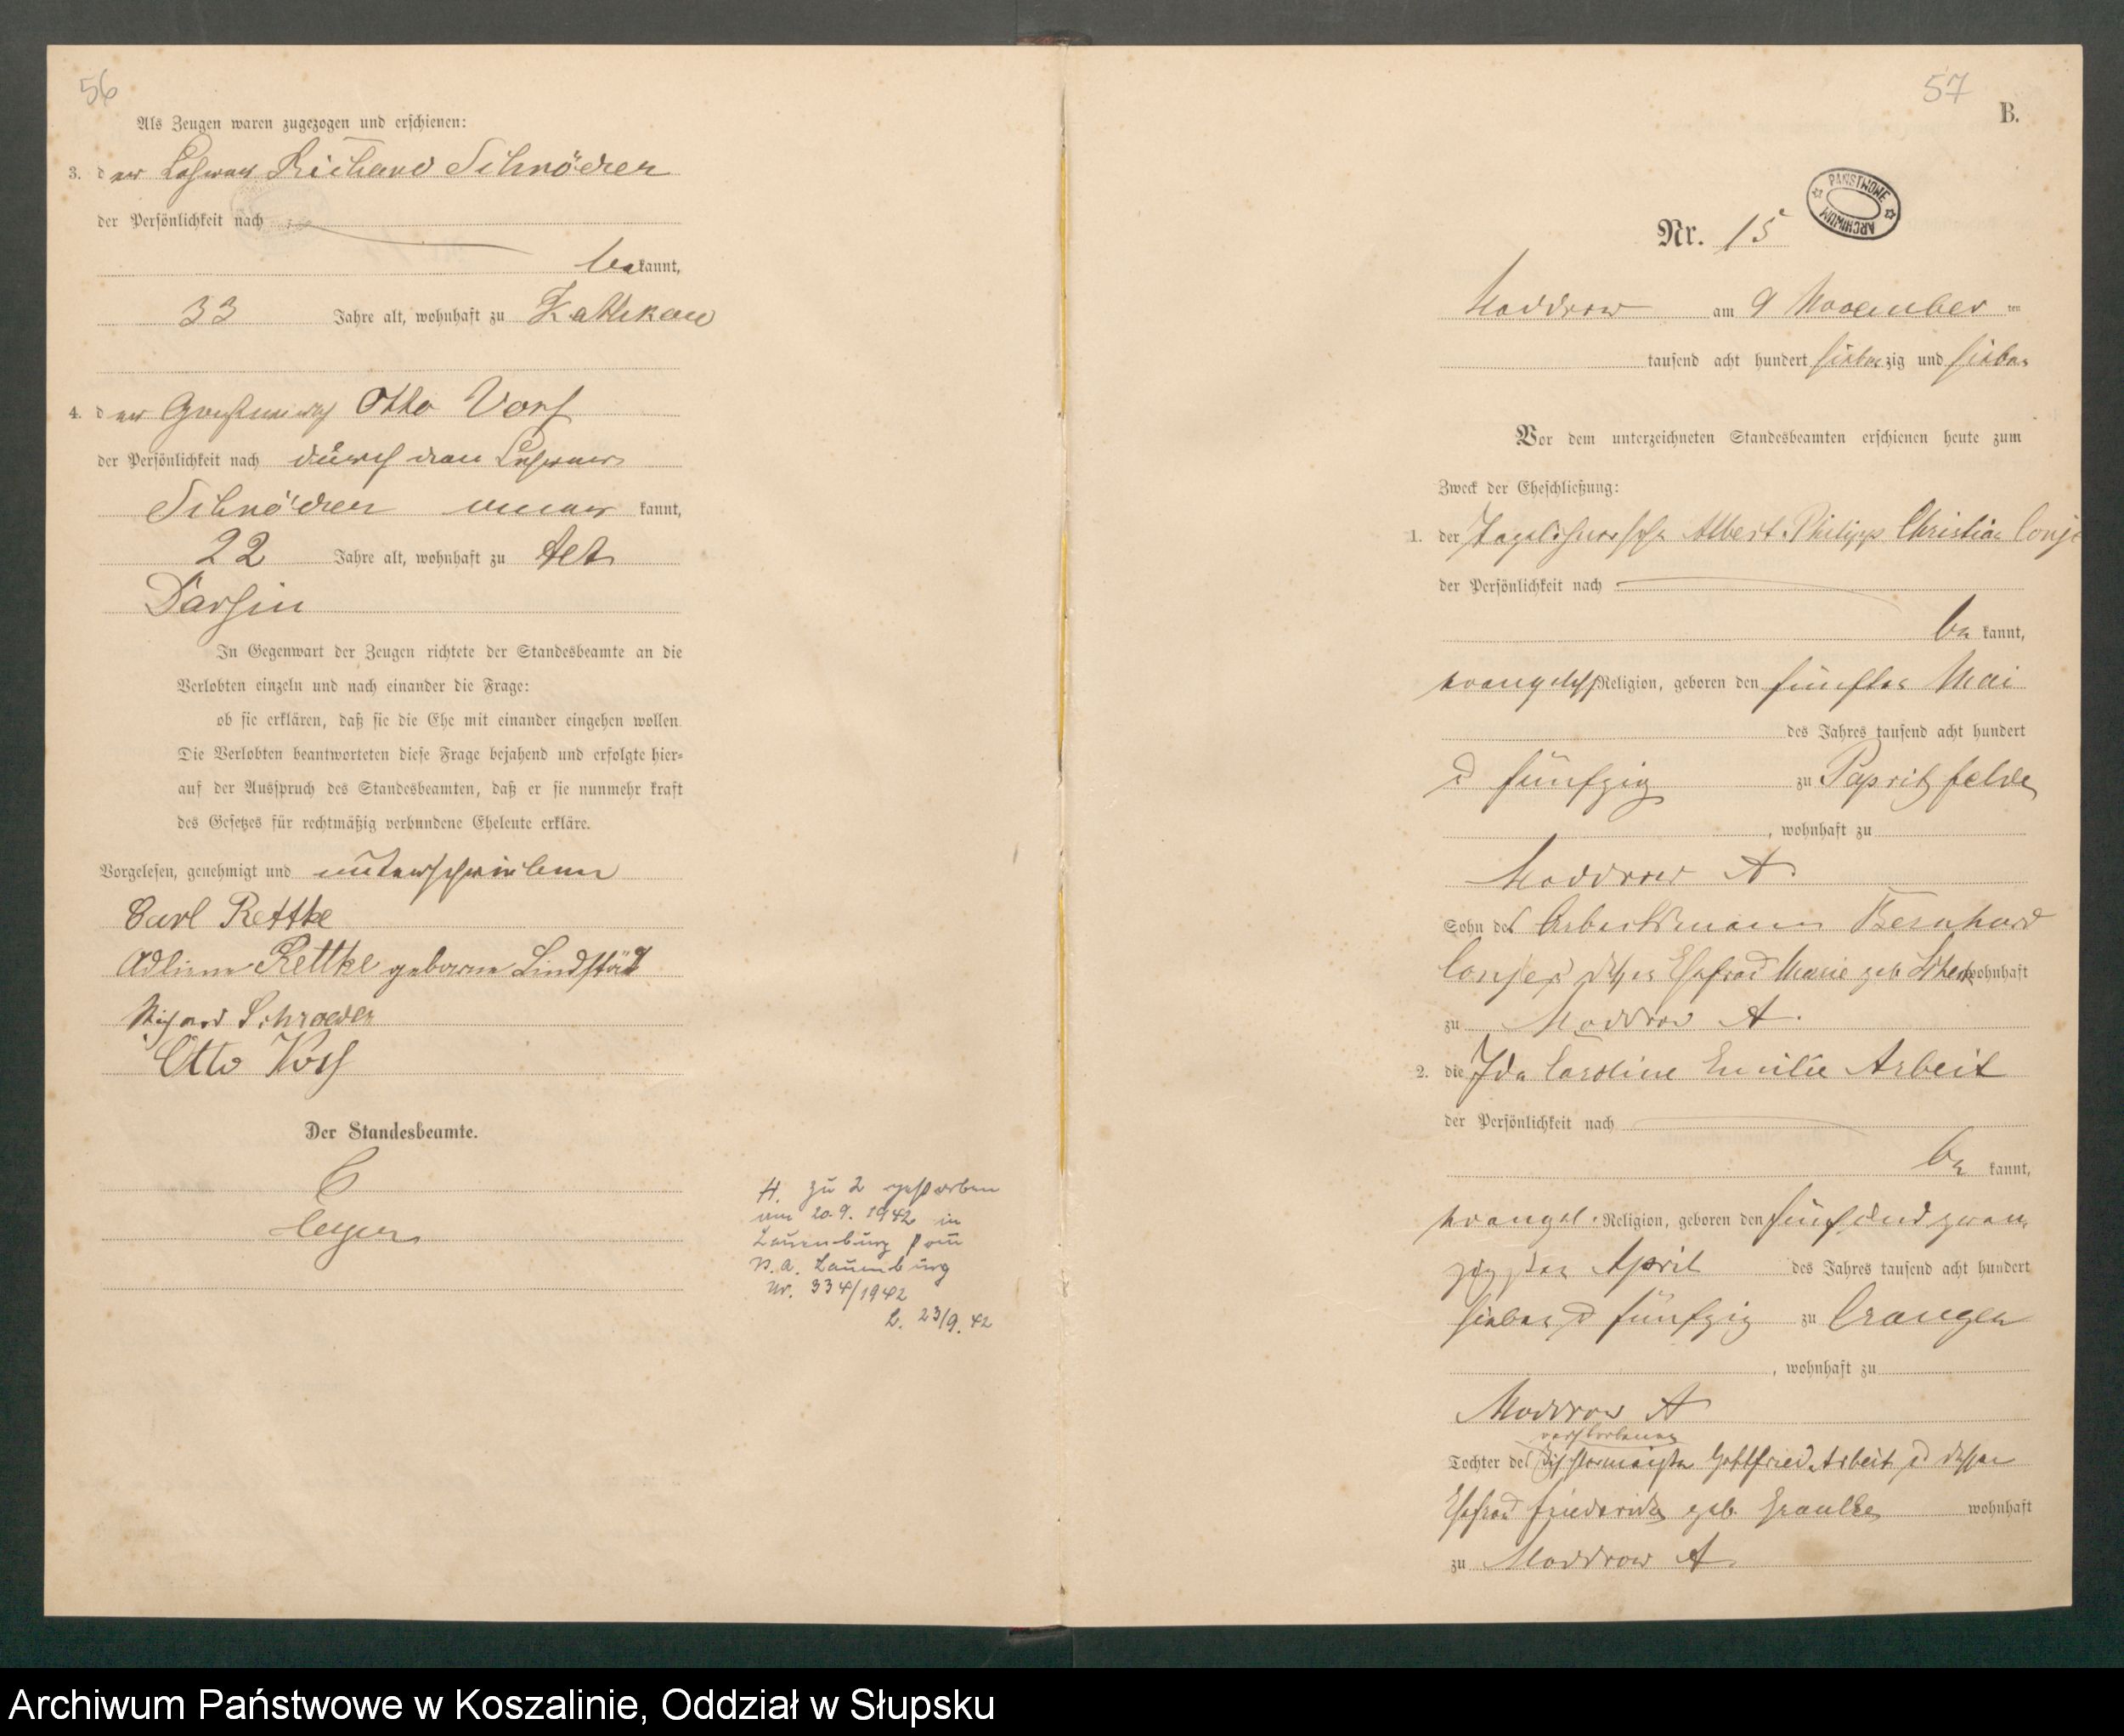 56
Als Zeugen waren zugezogen und erschienen:
3. der Lehrer Richard Schröder
der Persönlichkeit nach
bekannt,
33 Jahre alt, wohnhaft zu Zattkow
4. der Otto Voss
der Persönlichkeit nach durch den Lehrer
Schröder kannt,
22 Jahre alt, wohnhaft zu Alt
Darsin
In Gegenwart der Zeugen richtete der Standesbeamte an die
Verlobten einzeln und nach einander die Frage:
ob sie erklären, daß sie die Ehe mit einander eingehen wollen
Die Verlobten beantworteten diese Frage bejahend und erfolgte hier=
auf der Ausspruch des Standesbeamten, daß er sie nunmehr kraft
des Gesetzes für rechtmäßig verbundene Eheleute erkläre.
Vorgelesen, genehmigt und unterschrieben
Carl Rettke
Adline Rettke geborne Lindstädt
Richard Schroeder
Otto Voss
Der Standesbeamte.
H. zu 2 gestorben
am 20.9. 1942 in
Lauenburg Pom
St. A. Lauenburg
Nr. 334/1942
L. 23/9. 42
57
B.
PAŃSTWOWE ARCHIWUM
Nr. 15
Moddrow am 9 November ten
tausend acht hundert siebenzig und sieben
Vor dem unterzeichneten Standesbeamten erschienen heute zum
Zweck der Eheschließung:
1. der Albert Philipp Christian
der Persönlichkeit nach
be kannt,
evangelisch Religion, geboren den fünften Mai
des Jahres tausend acht hundert
u fünfzig zu Papritzfelde
, wohnhaft zu
Moddrow A
Sohn des Arbeitsmann Bernhard
dessen Ehefrau Marie geb wohnhaft
zu Moddrow A.
2. die Ida Caroline Emilie Arbeit
der Persönlichkeit nach
be kannt,
evangel. Religion, geboren den fünf und zwan
zigsten April des Jahres tausend acht hundert
sieben u fünfzig zu Crangen
, wohnhaft zu
Moddrow A
verstorbenen
Tochter des Gottfried Arbeit u dessen
Ehefrau Friederike geb. wohnhaft
zu Moddrow A.
Archiwum Państwowe w Koszalinie, Oddział w Słupsku